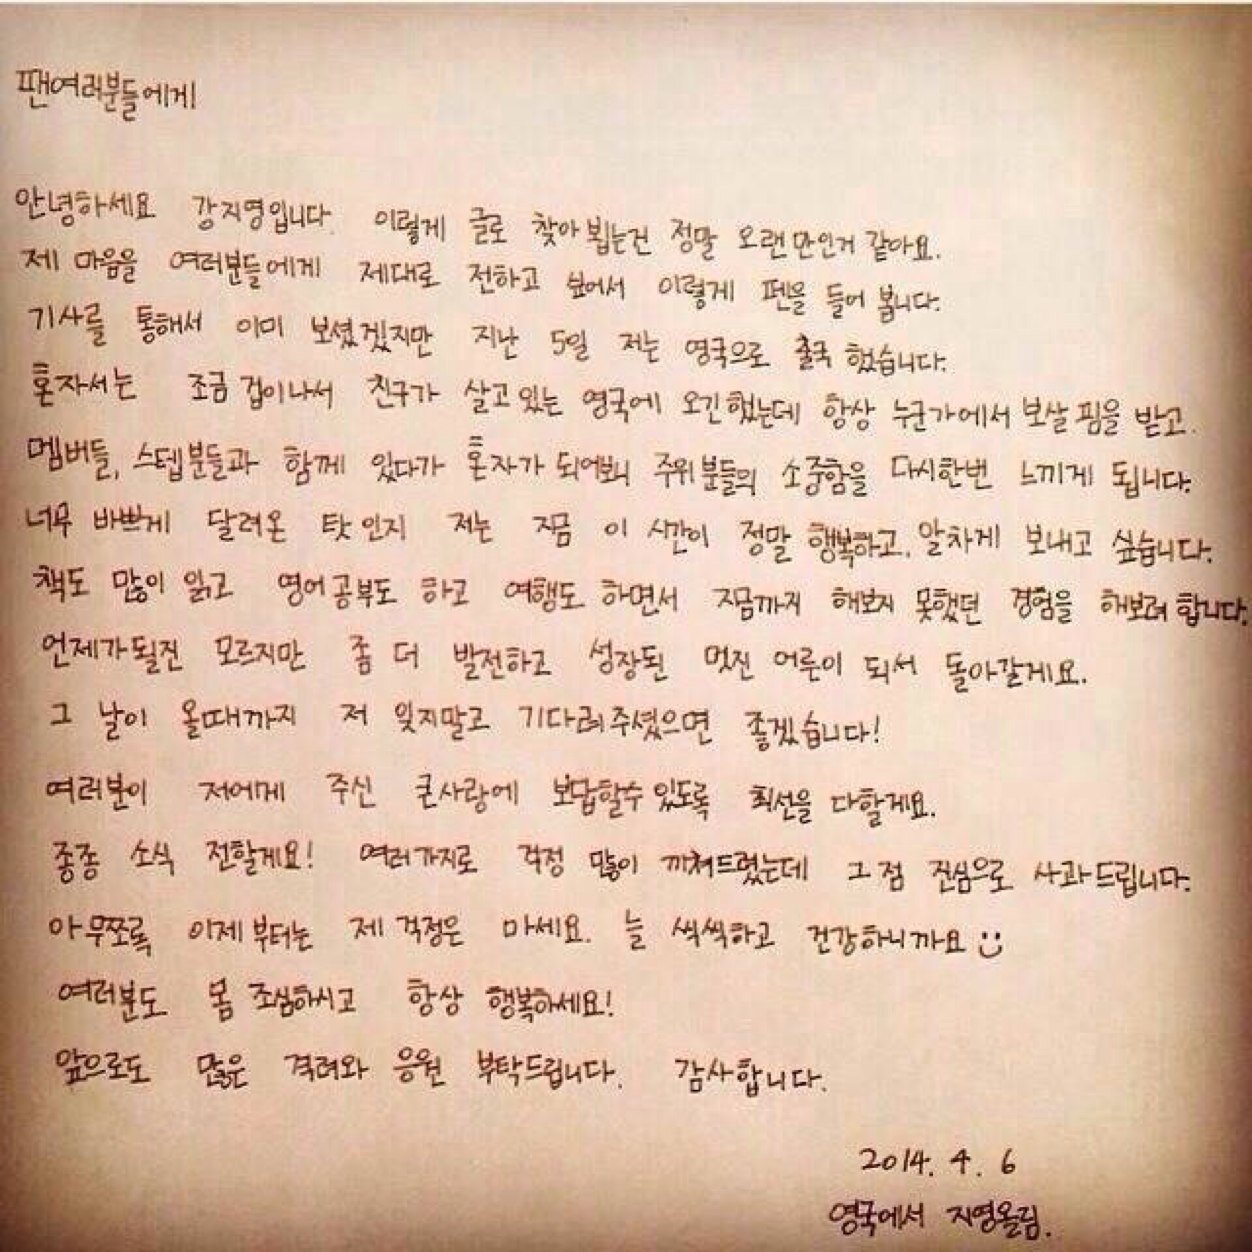 팬여러분들에게
안녕하세요 강지영입니다. 이렇게 글로 찾아뵙는건 정말 오랜만인거 같아요.
제 마음을 여러분들에게 제대로 전하고 싶어서 이렇게 펜을 들어 봅니다.
기사를 통해서 이미 보셨겠지만 지난 5일 저는 영국으로 출국 했습니다.
혼자서는 조금 겁이나서 친구가 살고있는 영국에 오긴했는데 항상 누군가에게서 보살핌을 받고.
멤버들, 스텝분들과 함께 있다가 혼자가 되어보니 주위분들의 소중함을 다시한번 느끼게 됩니다.
너무 바쁘게 달려온 탓인지 저는 지금 이 시간이 정말 행복하고, 알차게 보내고 싶습니다.
책도 많이 읽고 영어공부도 하고 여행도 하면서 지금까지 해보지 못했던 경험을 해보려합니다.
언제가될진 모르지만 좀 더 발전하고 성장된 멋진 어른이 되서 돌아갈게요.
그 날이 올때까지 저 잊지말고 기다려주셨으면 좋겠습니다!
여러분이 저에게 주신 큰사랑에 보답할수있도록 최선을 다할게요.
종종 소식 전할게요! 여러가지로 걱정 많이 끼쳐드렸는데 그 점 진심으로 사과드립니다.
아무쪼록 이제부터는 제 걱정은 마세요. 늘 씩씩하고 건강하니까요
여러분도 몸 조심하시고 항상 행복하세요!
앞으로도 많은 격려와 응원 부탁드립니다. 감사합니다.
2014. 4. 6
영국에서 지영올림.